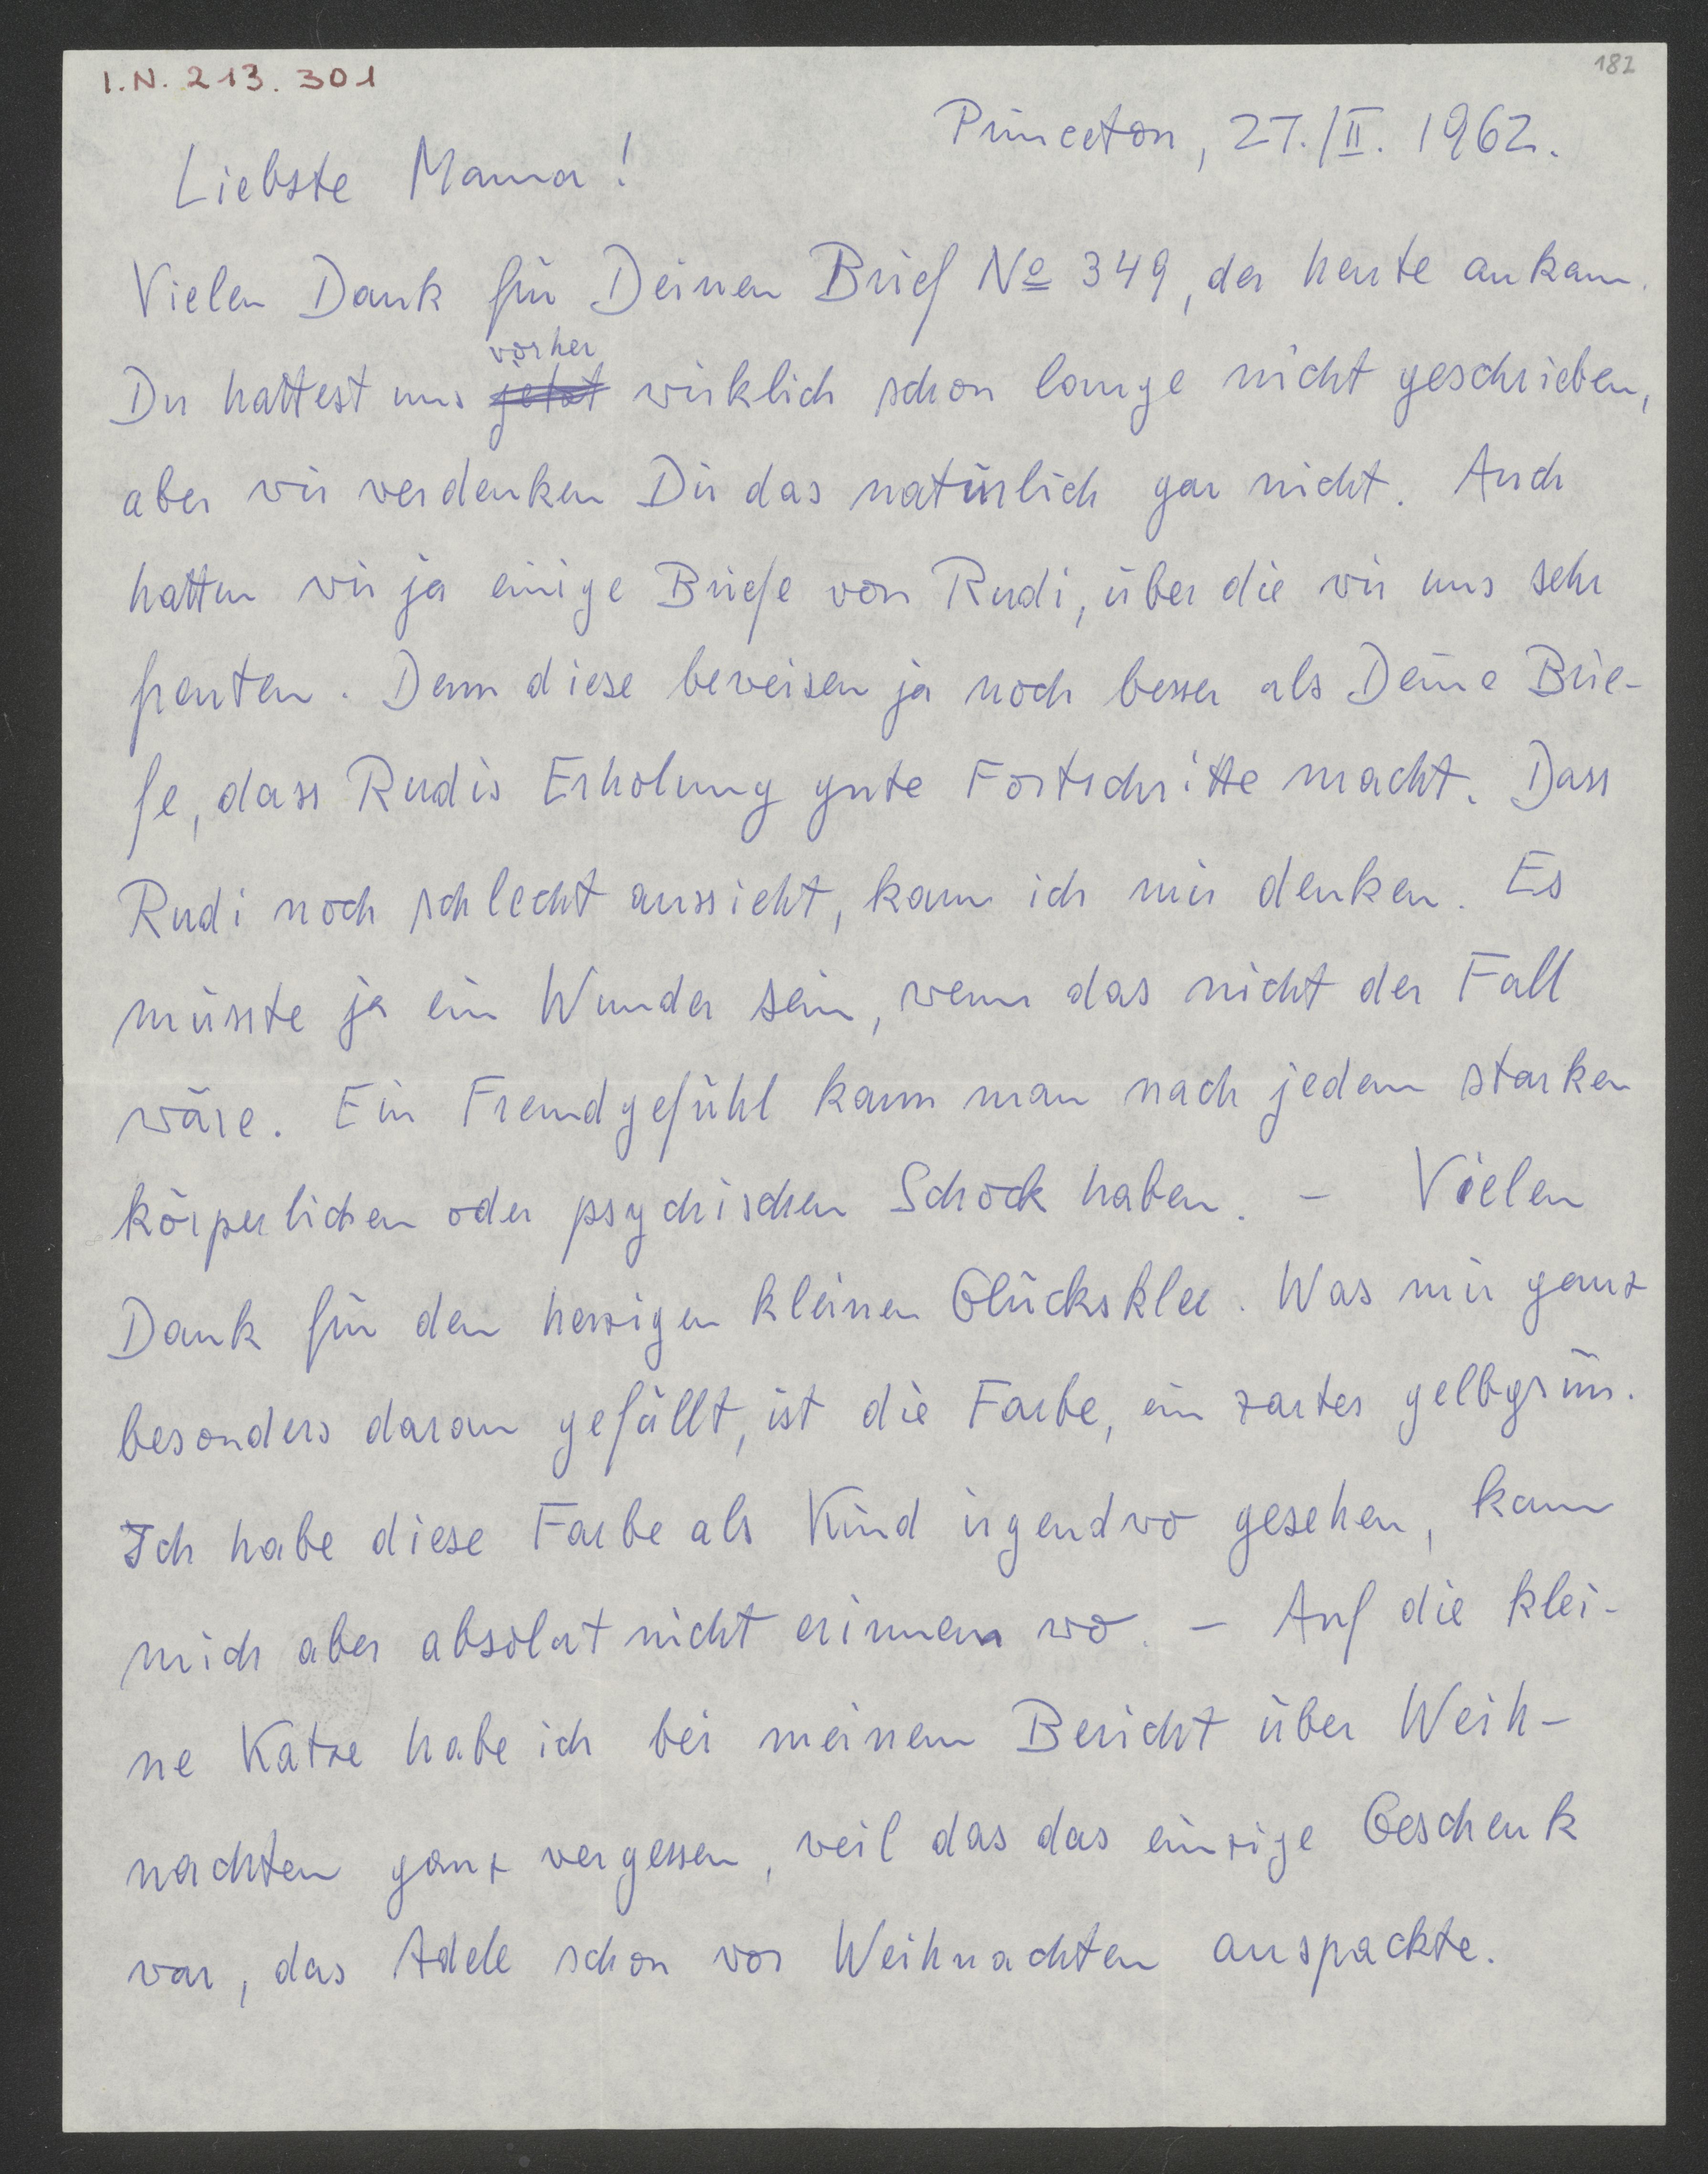 I.N. 213.301
182
Princeton, 27./II. 1962.
Liebste Mama!
Vielen Dank für Deinen Brief No 349, der heute ankam.
vorher
Du hattest uns jetzt wirklich schon lange nicht geschrieben,
aber wir verdenken Dir das natürlich gar nicht. Auch
hatten wir ja einige Briefe von Rudi, über die wir uns sehr
freuten. Denn diese beweisen ja noch besser als Deine Brie-
fe, dass Rudis Erholung gute Fortschritte macht. Dass
Rudi noch schlecht aussieht, kann ich mir denken. Es
müsste ja ein Wunder sein, wenn das nicht der Fall
wäre. Ein Fremdgefühl kann man nach jedem starken
körperlichen oder psychischen Schock haben. – Vielen
Dank für den herzigen kleinen Glücksklee. Was mir ganz
besonders daran gefällt, ist die Farbe, ein zartes gelbgrün.
Ich habe diese Farbe als Kind irgendwo gesehen, kann
mich aber absolut nicht erinnern wo. – Auf die klei-
ne Katze habe ich bei meinem Bericht über Weih-
nachten ganz vergessen, weil das das einzige Geschenk
war, das Adele schon vor Weihnachten auspackte.